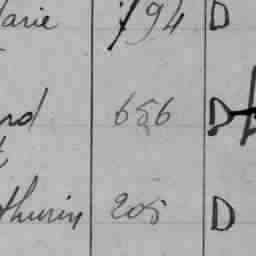 arie 194 D
rd 656 D
thurin 205 D